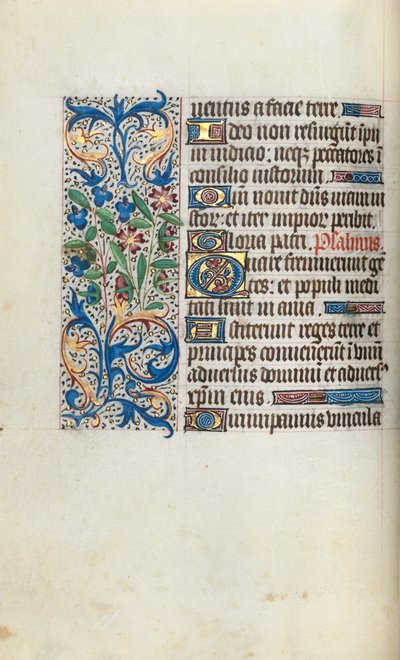 uentus a facie terre.
Ideo non resurgũt ĩpii
in iudicio: neq; peccatores ĩ
consilio iustorum.
Qm nouit dñs uiam iu
stor: et iter impior peribit.
Gloria patri. Psalmus.
Quare fremuerunt gẽ
tes: et populi medi
tati sunt in ania.
Astiterunt reges terre et
principes conuenerũt ĩ unũ
aduersus dominũ et aduers
xp̃m eius.
Dirumpamus uincula